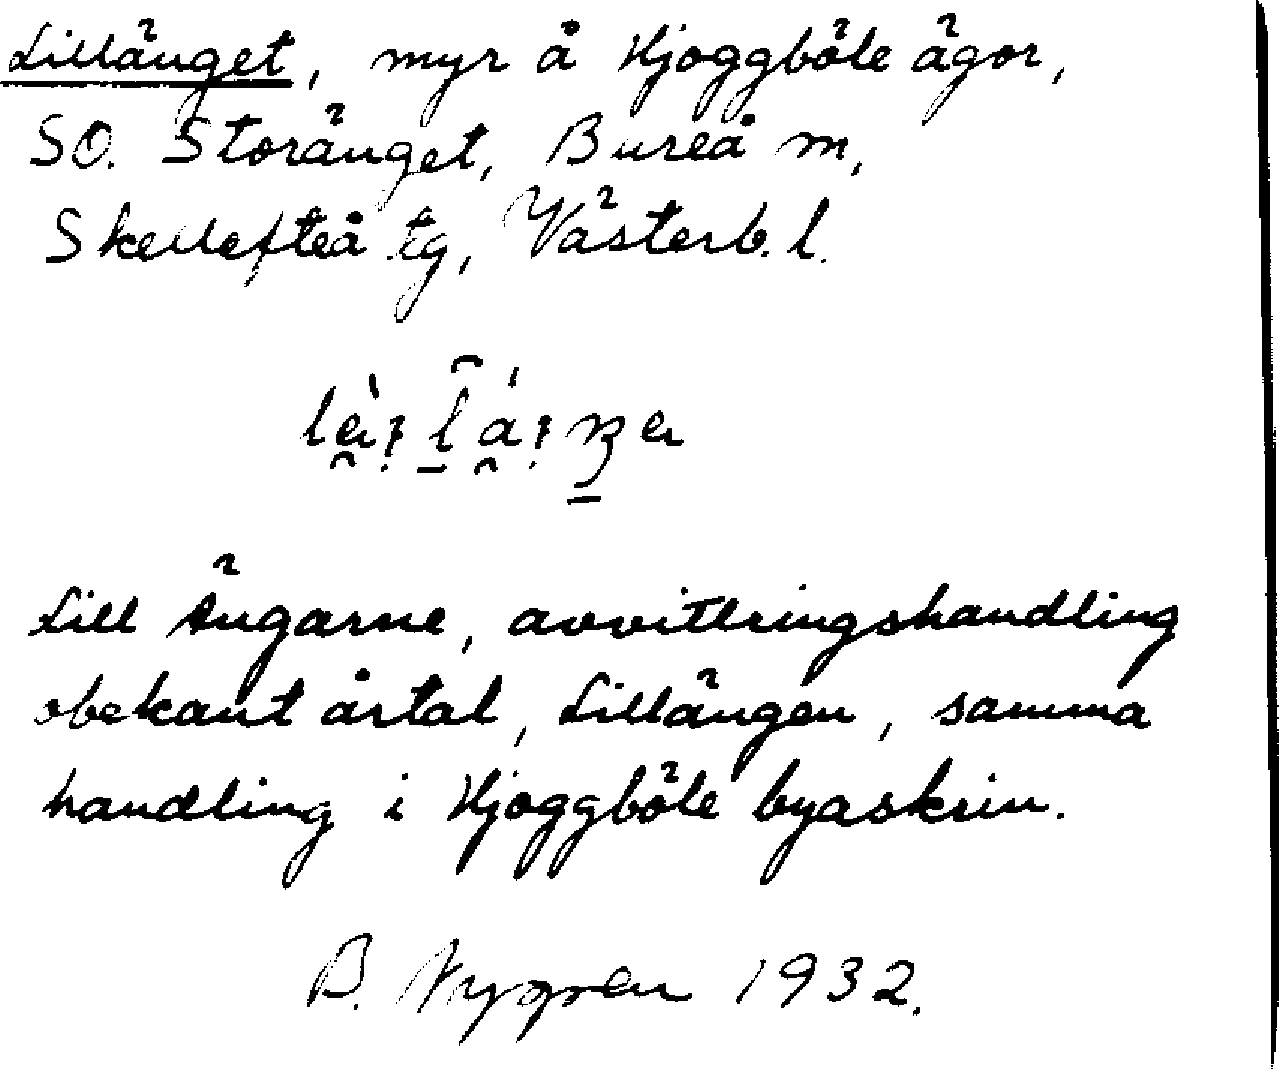 Lillänget, myr å Hjoggböle ägor,
SO. Storänget, Bureå m,
Skellefteå tg, Västerb. l.
Lill Ängarne, avvittringshandling
obekant årtal, Lillängen, samma
handling i Hjoggböle byaskrin.
B. Nygren 1932.